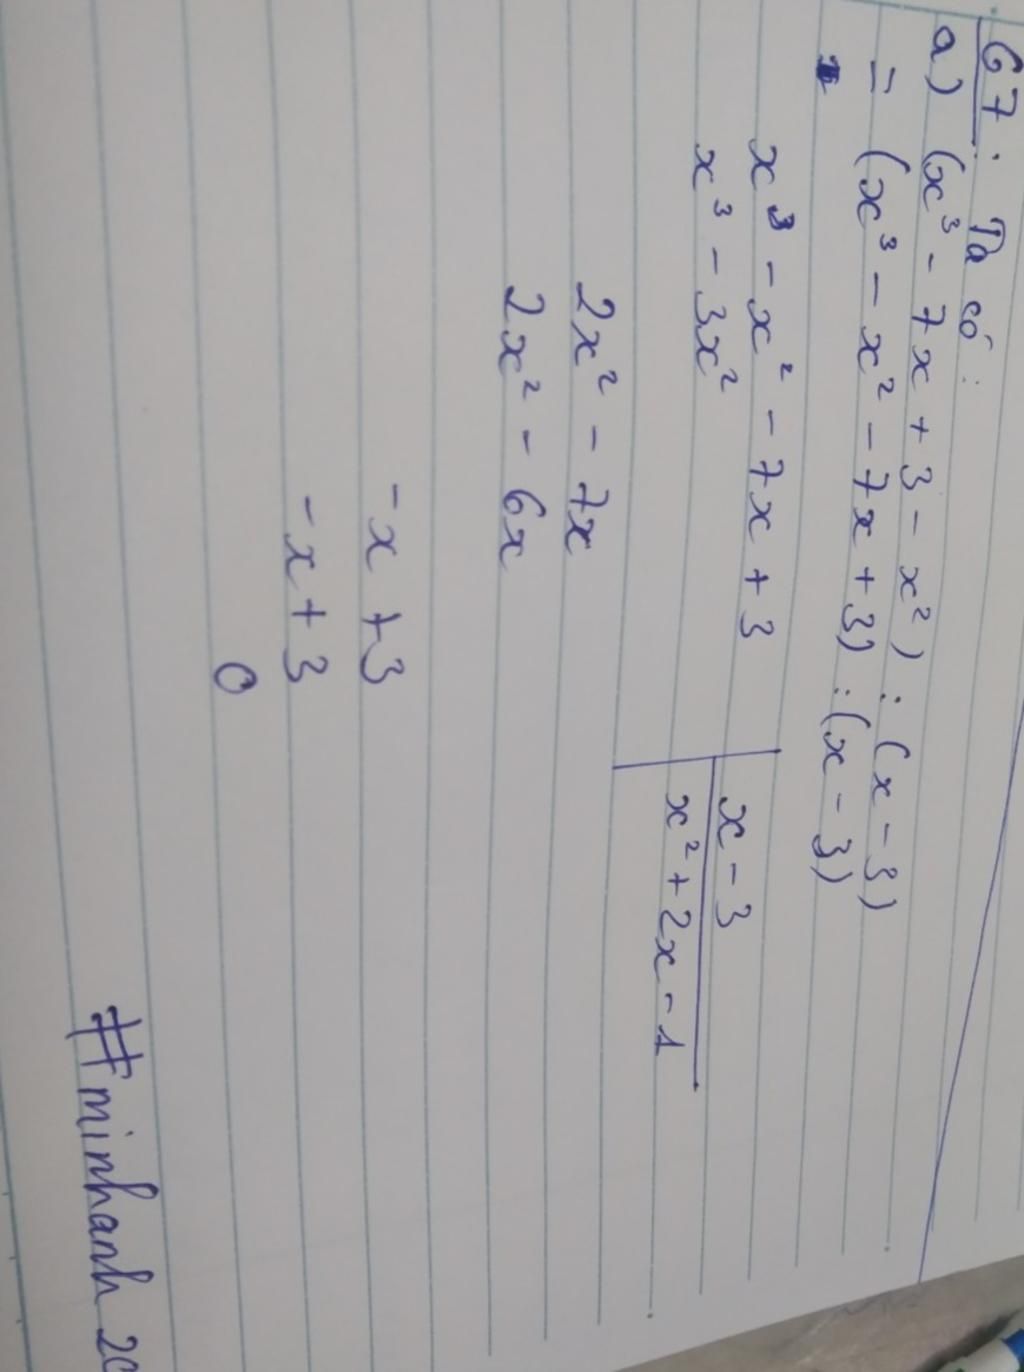 67. Ta có:
a) (x³ - 7x + 3 - x²) : (x - 3)
= (x³ - x² - 7x + 3) : (x - 3)
x³ - x² - 7x + 3 x - 3
x³ - 3x² x² + 2x - 1
2x² - 7x
2x² - 6x
-x + 3
-x + 3
0
#minhanh 20